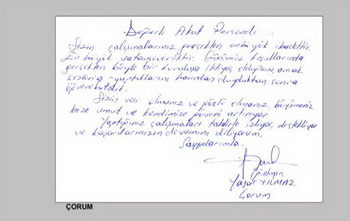 Değerli Akut Personeli...
Sizin çalışmalarınız gerçekten en büyük ibadettir.
En büyük vatanseverliktir. Günümüz koşullarında
gerçekten böyle bir kuruluşa ihtiyaç olduğunu, ancak
sizlerin yaptıklarını duyduktan sonra
öğrenebildik.
Sizin var oluşunuz ve güçlü oluşunuz,
bize umut ve kendimize güveni artırıyor.
Yaptığınız çalışmaları takdirle izliyor, destekliyor
ve başarılarınızın devamını diliyorum.
Saygılarımla.
Öğretmen
Yaşar YILMAZ
Çorum
ÇORUM